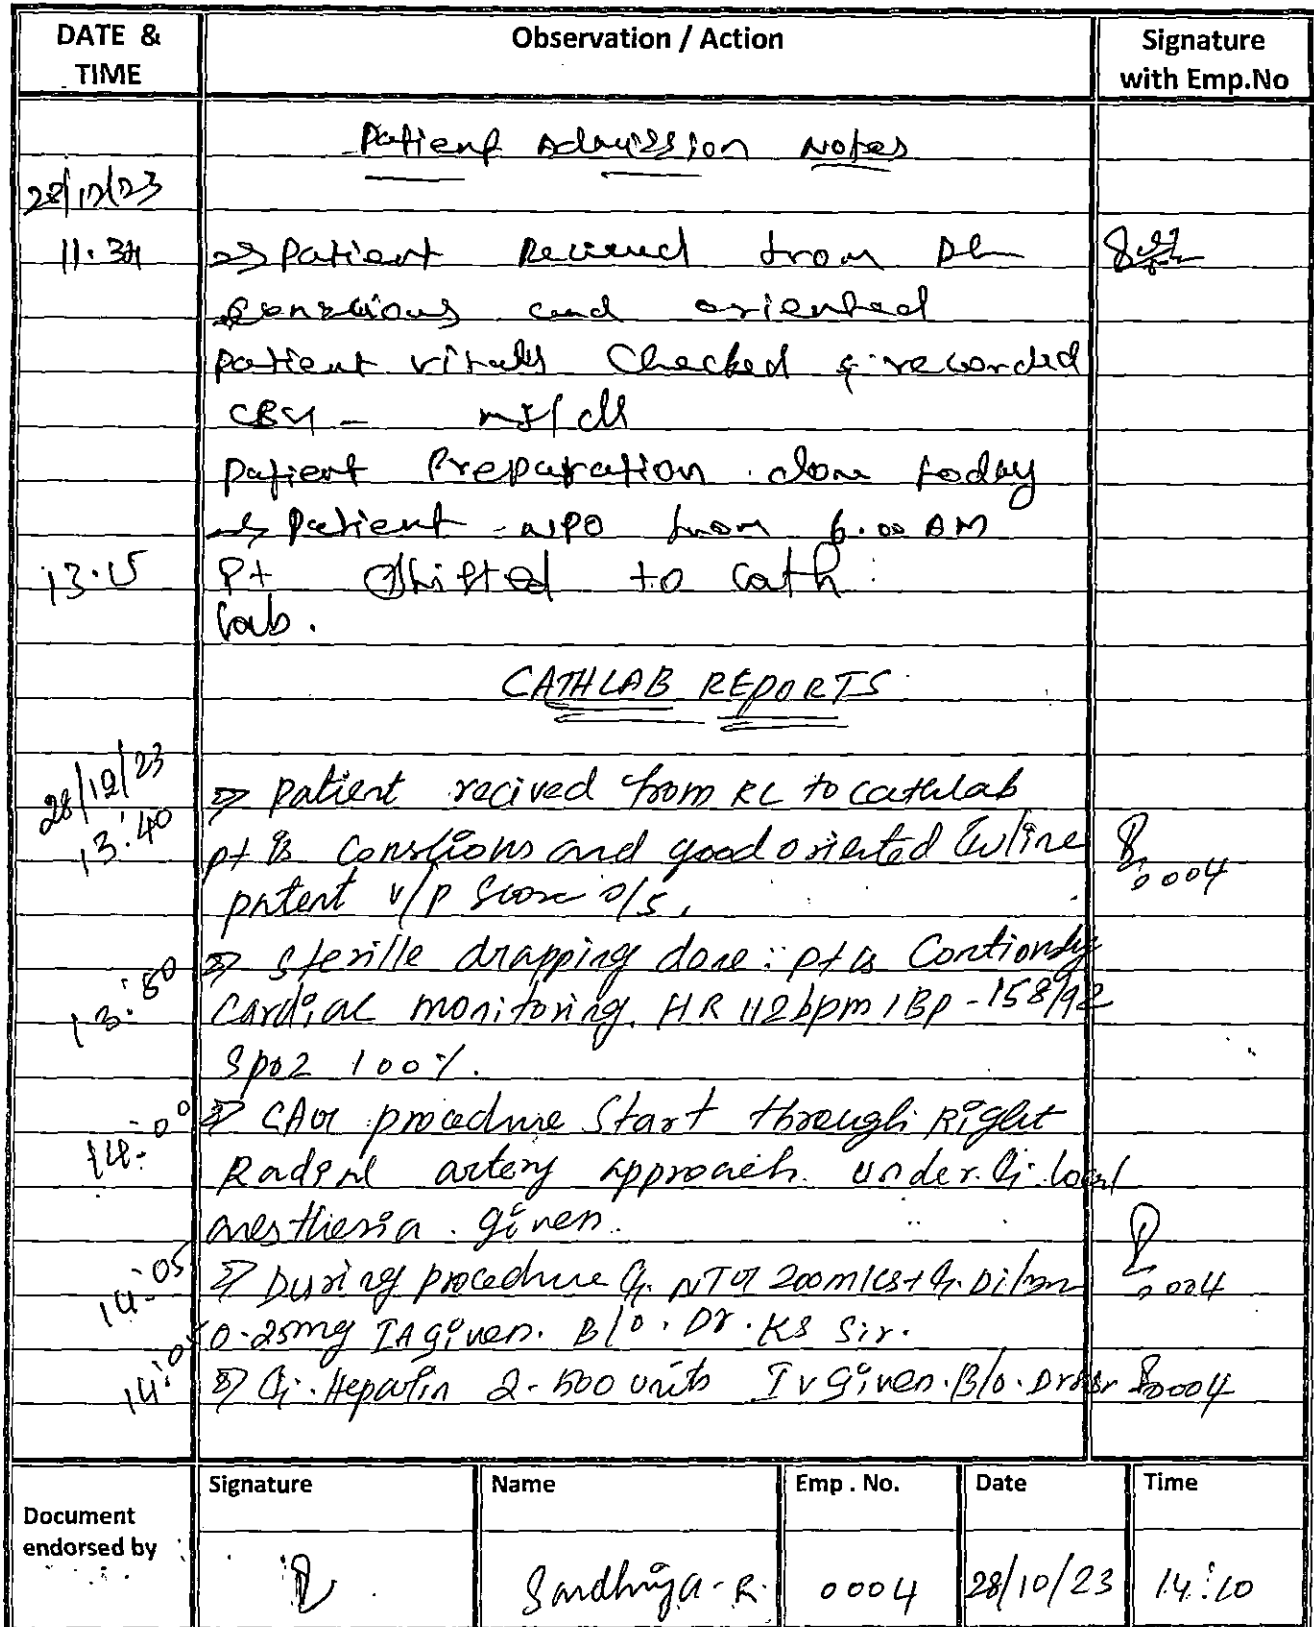 DATE & TIME Observation / Action Signature with Emp.No
Patient Admission Notes
28/12/23
11.30 => Patient Recieved from
consious and oriented
patient vitals Checked & recorded
CBG - mg/dl
Patient Preparation done today
=> Patient NPO from 6.00 AM
13.15 Pt Shifted to Cath
Lab.
CATHLAB REPORTS
28/12/23
13:40 => patient recived from RL to cathlab
pt is Constions and good oriented Iv line 0004
patent v/p Score 0/5.
13:50 => sterille drapping done: pt is Contionsly
Cardiac monitoring. HR 112bpm / BP-158/92
Spo2 100%.
14:00 => CAG procedure Start through Right
Radial artery approach under Inj. local
anesthesia. given.
14:05 => During procedure Inj. NTG 200mics + Inj. 0004
0.25mg IA given. B/o. Dr. KS Sir.
=> Inj. Heparin 2-500 units Iv Given. B/o. 0004
Document endorsed by Signature Name Emp . No. Date Time
Sandhiya-R. 0004 28/10/23 14:10